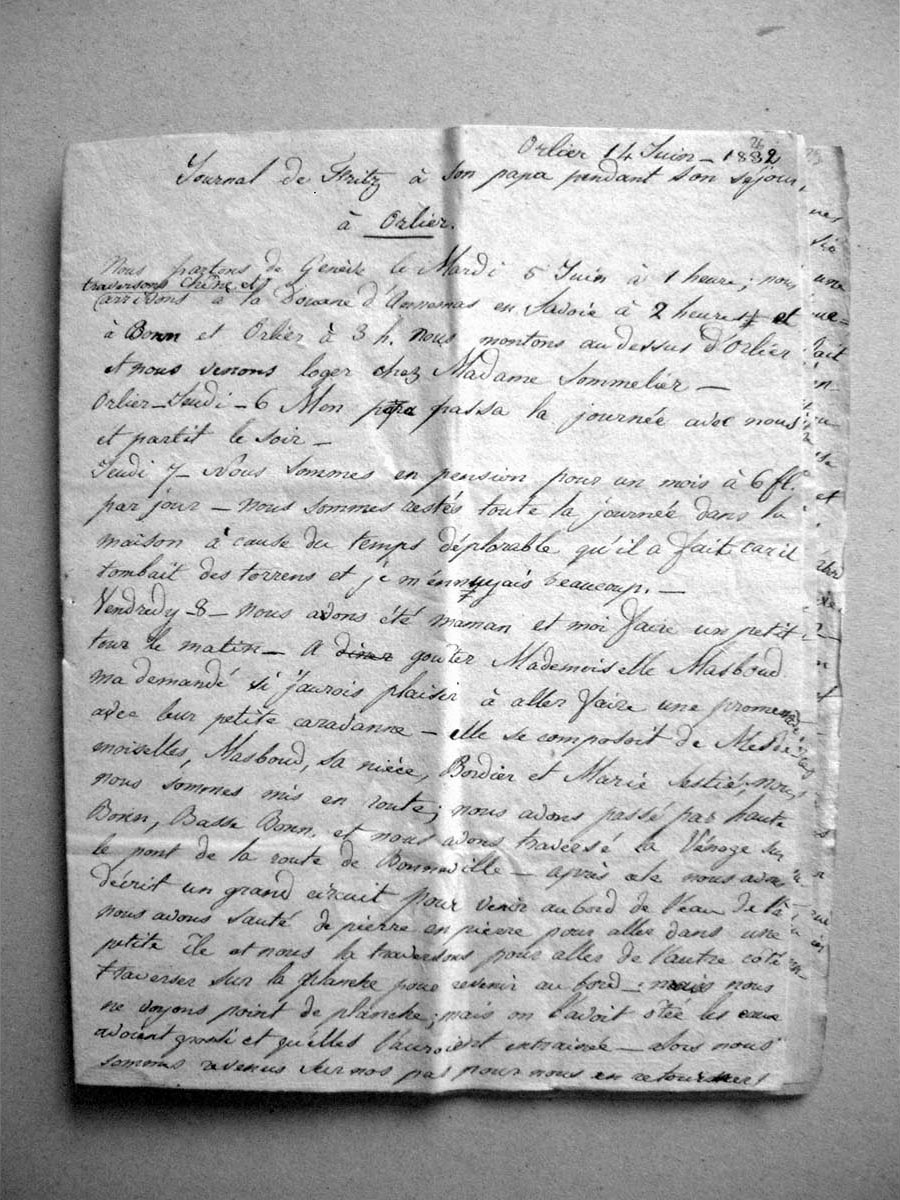 26
Orlier 14 Juin - 1832
Journal de Fritz à son papa pendant son séjour
à Orlier.
Nous partons de Genève le Mardi 5 Juin à 1 heure; nous
traversons Chêne et
arrivons à la Douane d'Annemas en Savoie à 2 heures et
à Bonn et Orlier à 3 h. nous montons au dessus d'Orlier
et nous venons loger chez Madame Sommelier —
Orlier - Jeudi - 6 Mon papa passa la journée avec nous
et partit le soir —
Jeudi 7 - Nous sommes en pension pour un mois à 6 fl.
par jour - nous sommes restés toute la journée dans la
maison à cause du temps déplorable qu'il a fait car il
tombait des torrens et je m'ennuyais beaucoup. —
Vendredy - 8 - nous avons été maman et moi faire un petit
tour le matin - A diner gouter Mademoiselle Masboud
ma demandé si j'aurois plaisir à aller faire une promenade
avec leur petite caravanne - elle se composoit de Mesde-
moiselles, Masboud, sa nièce, Bordier et Marie Sestié; nous
nous sommes mis en route; nous avons passé par haute
Bonn, Basse Bonn, et nous avons traversé la Ménoge sur
le pont de la route de Bonneville - après cela nous avons
décrit un grand circuit pour venir au bord de l'eau de là
nous avons sauté de pierre en pierre pour aller dans une
petite île et nous la traversons pour aller de l'autre côté
traverser sur la planche pour revenir au bord - mais nous
ne voyons point de planche; mais on l'avoit otée les eaux
avoient grossi et qu'elles l'auroient entrainée - alors nous
sommes revenus sur nos pas pour nous en retourner